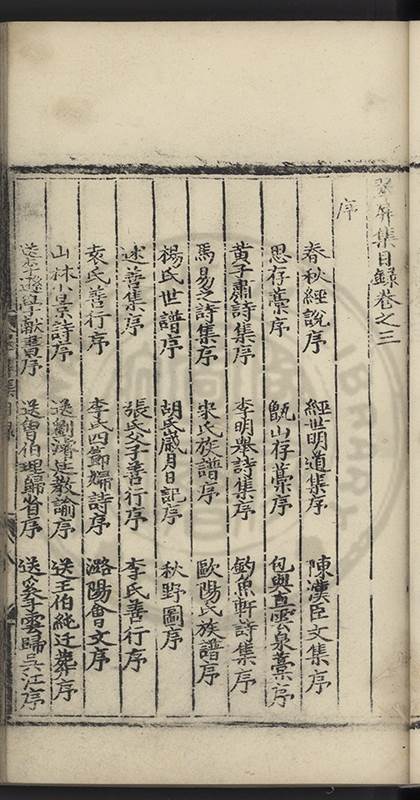 翠屏集目錄卷之三
序
春秋經說序 經世明道集序 陳漢臣文集序
思存藁序 甑山存藁序 包與直雲泉藁序
黃子肅詩集序 李明舉詩集序 釣魚軒詩集序
馬易之詩集序 宋氏族譜序 歐陽氏族譜序
楊氏世譜序 胡氏歲月日記序 秋野圖序
述善集序 張氏父子善行序 李氏善行序
袁氏善行序 李氏四節婦詩序 潞陽會文序
山林小景詩序 送劉濬廷教諭序 送王伯純迁葬序
送李 學獻書序 送曾伯理歸省序 送奚子雲歸吳江序